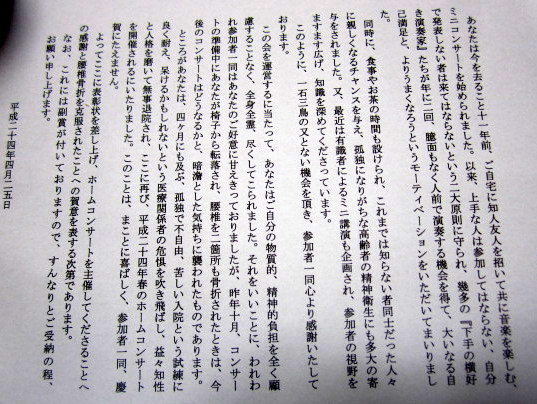 あなたは今を去ること十一年前、ご自宅に知人友人を招いて共に音楽を楽しむ、
ミニコンサートを始められました。以来、上手な人は参加してはならない、自分
で発表しない者は来てはならないという二大原則に守られ、幾多の『下手の横好
き演奏家』たちが年に二回、臆面もなく人前で演奏する機会を得て、大いなる自
己満足と、よりうまくなろうというモーティベーションをいただいてまいりまし
た。
同時に、食事やお茶の時間も設けられ、これまでは知らない者同士だった人々
に親しくなるチャンスを与え、孤独になりがちな高齢者の精神衛生にも多大の寄
与をされました。又、最近は有識者によるミニ講演も企画され、参加者の視野を
ますます広げ、知識を深めてくださっています。
このように、一石三鳥の又とない機会を頂き、参加者一同心より感謝いたして
おります。
この会を運営するに当たって、あなたはご自分の物質的、精神的負担を全く顧
慮することなく、全身全霊、尽くしてこられました。それをいいことに、われわ
れ参加者一同はあなたのご好意に甘えきっておりましたが、昨年十月、コンサー
トの準備中にあなたが椅子から転落され、腰椎を二箇所も骨折されたときは、今
後のコンサートはどうなるかと、暗澹とした気持ちに襲われたものであります。
ところがあなたは、四ヶ月にも及ぶ、孤独で不自由、苦しい入院という試練に
良く耐え、呆けるかもしれないという医療関係者の危惧を吹き飛ばし、益々知性
と人格を磨いて無事退院され、ここに再び、平成二十四年春のホームコンサート
を開催されるにいたりました。このことは、まことに喜ばしく、参加者一同、慶
賀にたえません。
よってここに表彰状を差し上げ、ホームコンサートを主催してくださることへ
の感謝と腰椎骨折を克服されたことへの賀意を表する次第であります。
なお、これには副賞が付いておりますので、すんなりとご受納の程、
お願い申し上げます。
平成二十四年四月二五日